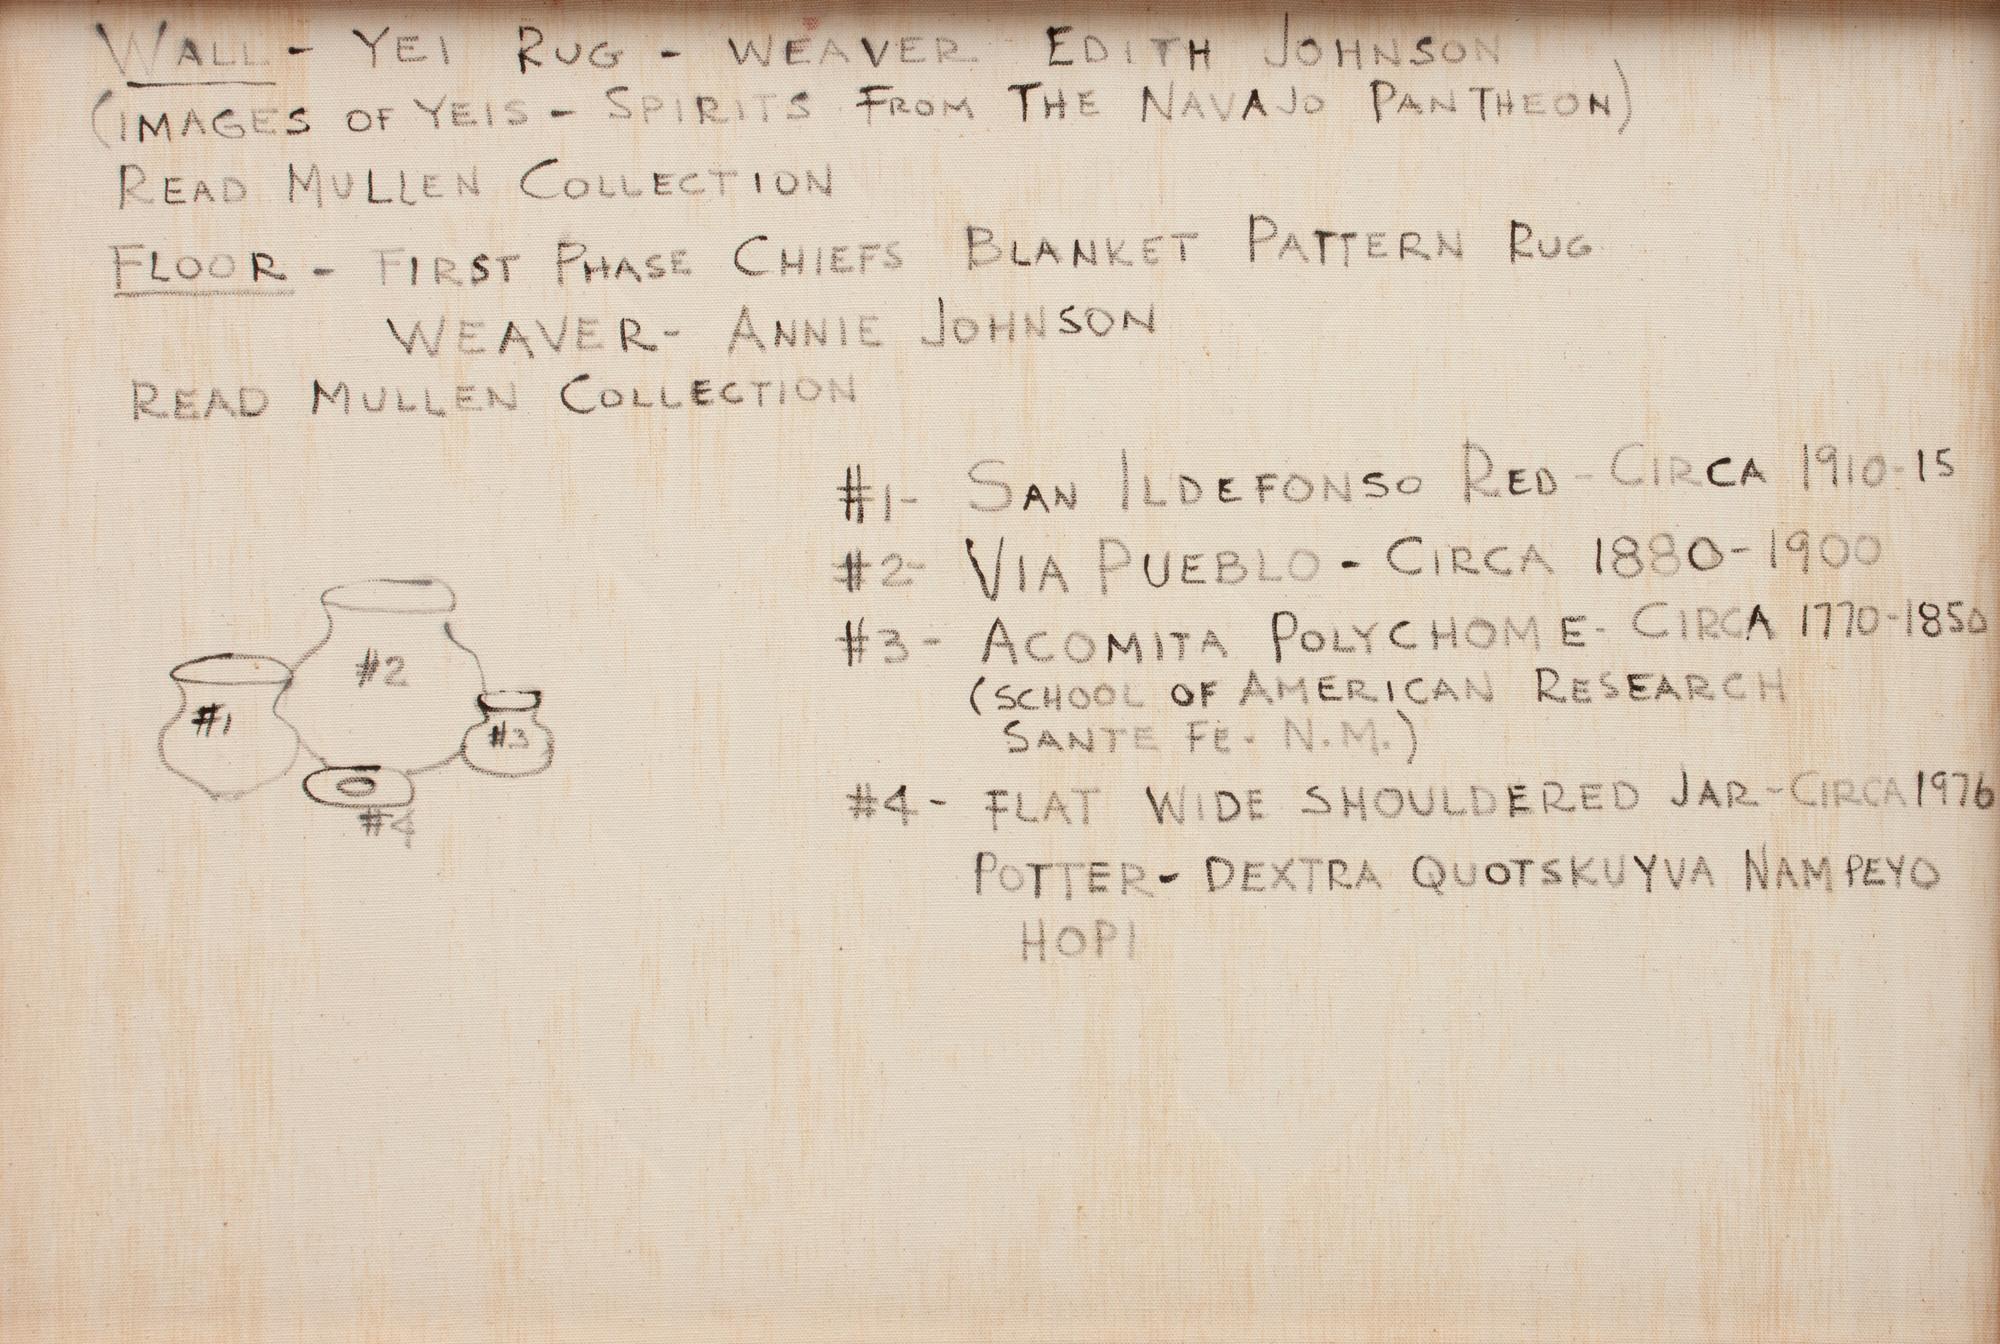 WALL - YEI RUG - WEAVER EDITH JOHNSON
(IMAGES OF YEIS - SPIRITS FROM THE NAVAJO PANTHEON)
READ MULLEN COLLECTION
FLOOR - FIRST PHASE CHIEFS BLANKET PATTERN RUG
WEAVER - ANNIE JOHNSON
READ MULLEN COLLECTION
#1- SAN ILDEFONSO RED - CIRCA 1910-15
#2- VIA PUEBLO - CIRCA 1880-1900
#3- ACOMITA POLYCHOME - CIRCA 1770-1850
(SCHOOL OF AMERICAN RESEARCH
SANTE FE. N.M.)
#4- FLAT WIDE SHOULDERED JAR - CIRCA 1976
POTTER - DEXTRA QUOTSKUYVA NAMPEYO
HOPI
#2
#1
#3
#4